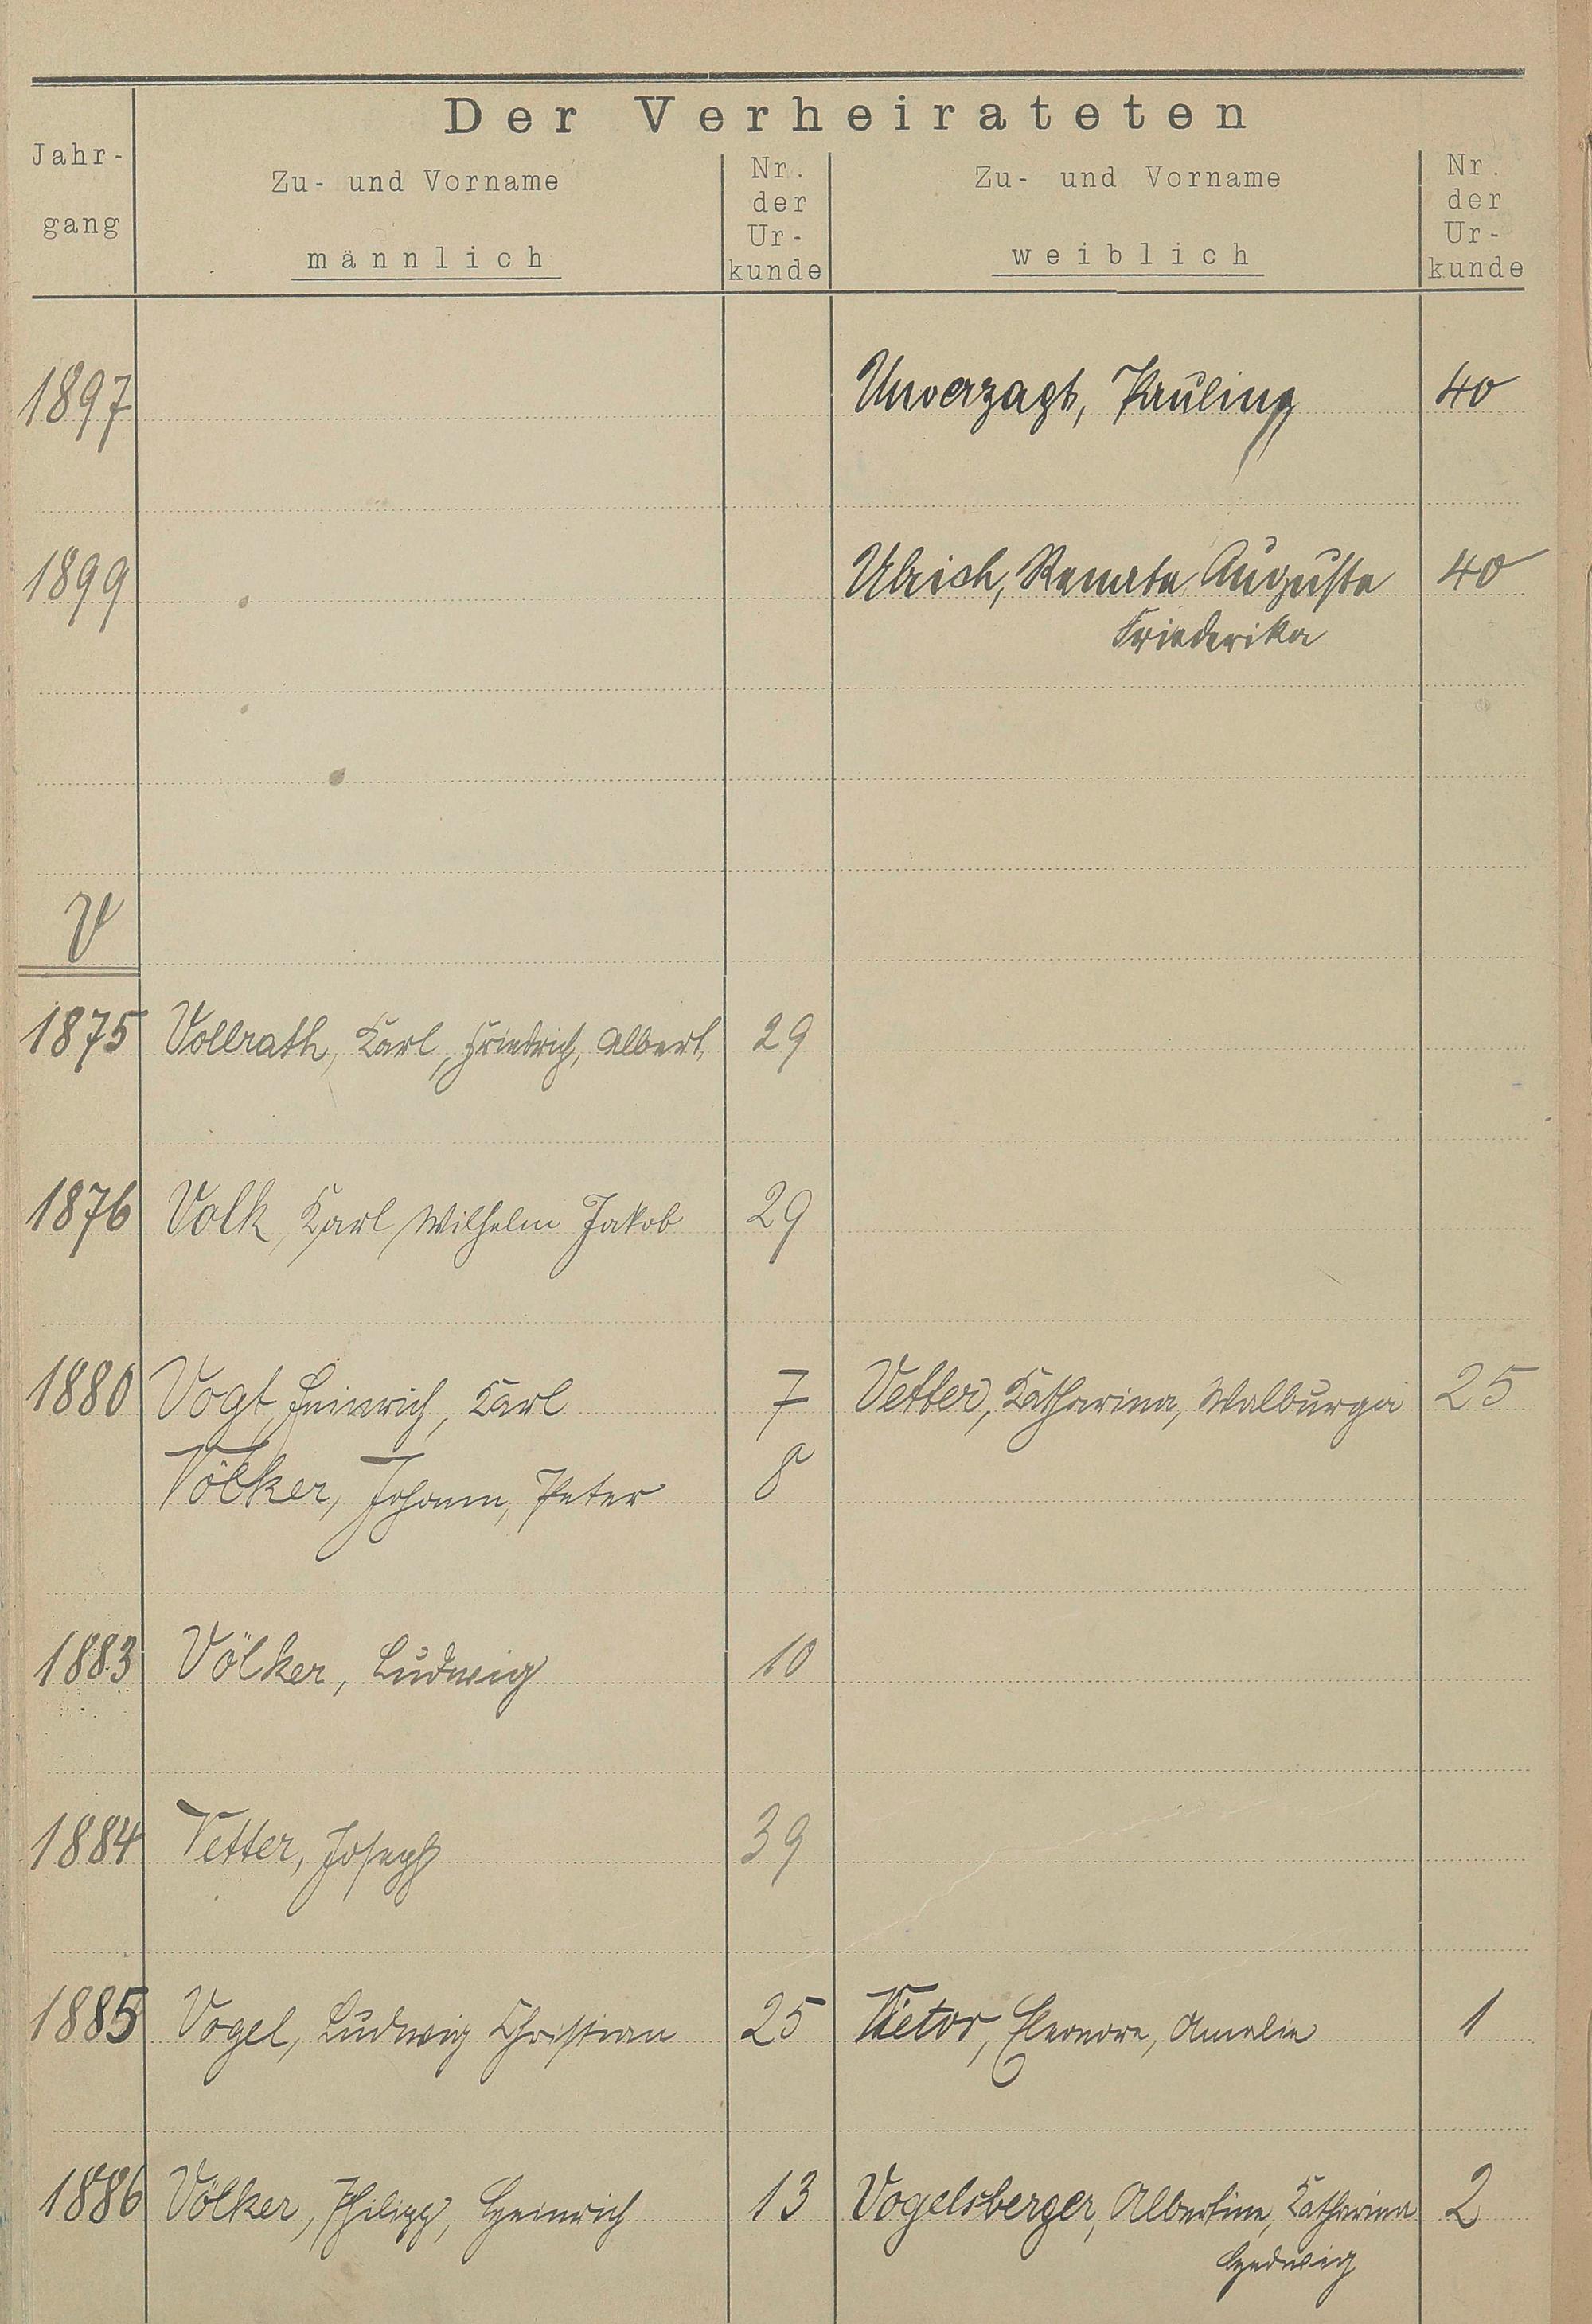 Der Verheirateten
Jahr-
gang
Zu- und Vorname
männlich
Nr.
der
Ur-
kunde
Zu- und Vorname
weiblich
Nr.
der
Ur-
kunde
1897 Unverzagt, Pauline 40
1899 Ulrich, Renate Auguste 40
Friederika
V
1875 Vollrath, Karl, Friedrich, Albert, 29
1876 Volk, Karl Wilhelm Jakob 29
1880 Vogt, Heinrich, Karl 7 Vetter, Katharina, Walburga 25
Völker, Johann, Peter 8
1883 Völker, Ludwig 10
1884 Vetter, Joseph 39
1885 Vogel, Ludwig Christian 25 Vietor, Eleonore, Amalie 1
1886 Völker, Philipp, Heinrich 13 Vogelsberger, Albertine, Katharina 2
Hedwig